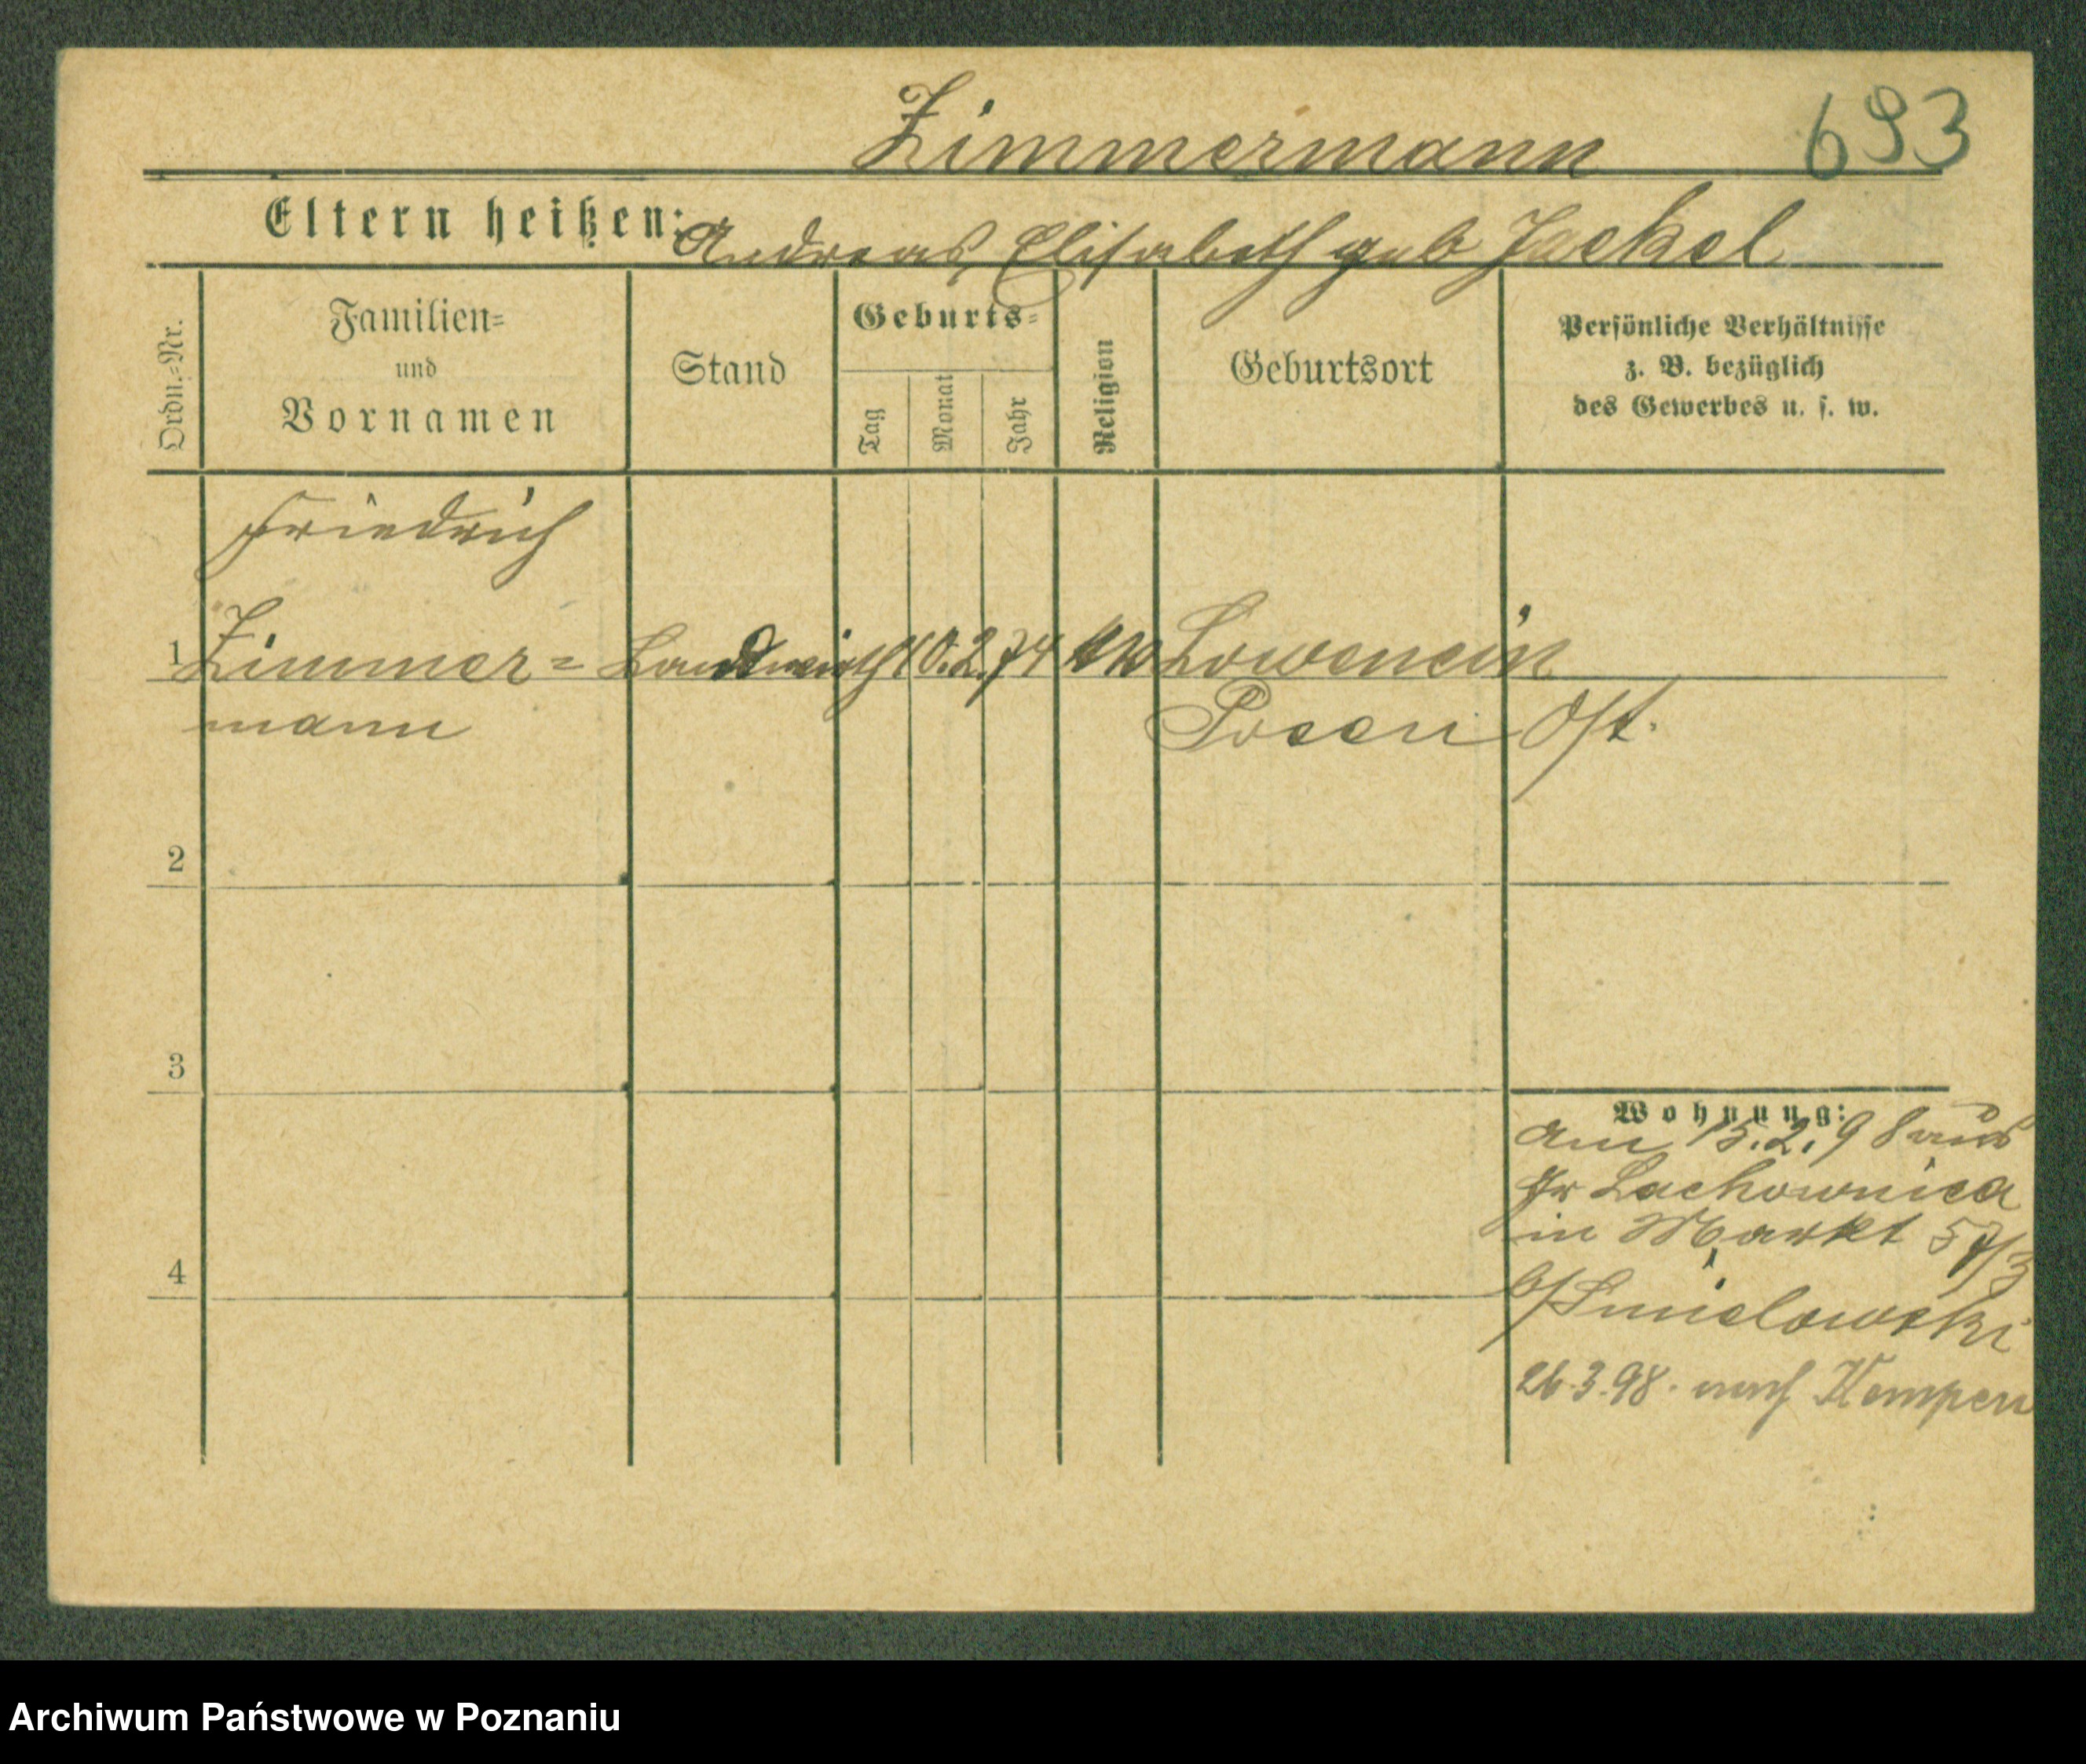 Zimmermann 693
Eltern heißen: Andreas, Elisabeth geb Jackel
Ordn.=Nr.
Familien=
und
Vornamen
Stand
Geburts=
Tag
Monat
Jahr
Religion
Geburtsort
Persönliche Verhältnisse
z. B. bezüglich
des Gewerbes u. s. w.
Friedrich
1 Zimmer= Landwirth 10. 2. 74 Lowencin
mann Posen Ost.
2
3
4
Wohnung:
am 15. 2. 98 aus
Gr Lachownica
in Markt 57/3
b/Smielowski
26.3.98. nach Kempen
Archiwum Państwowe w Poznaniu